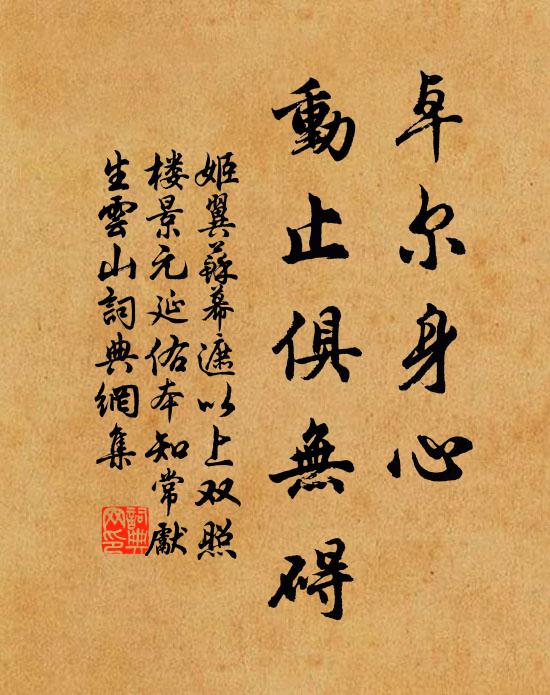 卓尔身心
動止俱無碍
姬翼蘇幕遮以上双照
楼景元延佑本知常獻
生雲山詞典網集
詞典网印